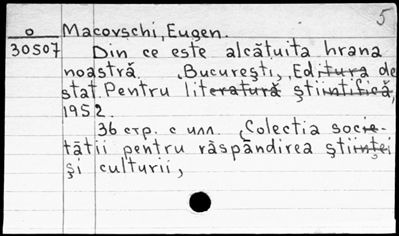 5
o Macovschi, Eugen.
30507 Din ce este alcătuita hrana
noastră. ,Bucureşti,, Editura de
stat Pentru literatură ştiinţifică,
1952.
36 стр. с илл. ,Colectia socie-
tăţii pentru răspândirea ştiinţei
şi culturii,